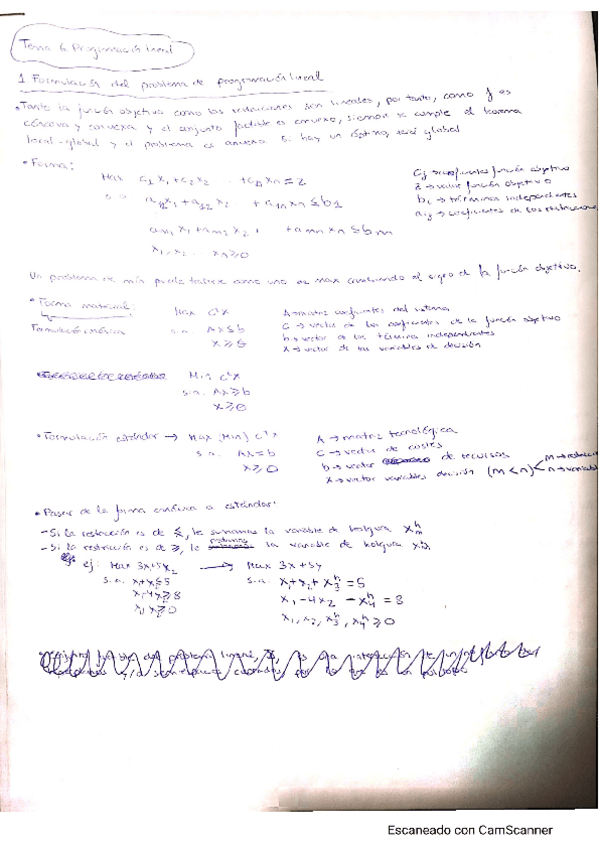 Tema 6. Programación lineal
1. Formulación del problema de programación lineal
• Tanto la función objetivo como las restricciones son lineales, por tanto, como f es
cóncava y convexa y el conjunto factible es convexo, siempre se cumple el teorema
local-global y el problema es convexo si hay un óptimo, será global
• Forma:
Max c1x1+c2x2 ... +cnxn=z
s.a. a11x1+a12x2 ... +a1nxn≤b1
am1x1+am2x2 ... +amnxn≤bm
x1,x2 ... xn≥0
cj → coeficientes función objetivo
z → valor función objetivo
bi → términos independientes
aij → coeficientes de las restricciones
Un problema de min puede tratarse como uno de max cambiando el signo de la función objetivo.
• Forma matricial:
Formulación canónica
Max cᵗx
s.a. Ax≤b
x≥0
A → matriz coeficientes del sistema
C → vector de los coeficientes de la función objetivo
b → vector de los términos independientes
x → vector de las variables de decisión
Min cᵗx
s.a. Ax≥b
x≥0
• Formulación estándar → Max (Min) cᵗx
s.a. Ax=b
x≥0
A → matriz tecnológica
C → vector de costes
b → vector de recursos
x → vector variables decisión (m<n) m → restricc
n → variabl
• Pasar de la forma canónica a estándar:
- Si la restricción es de ≤, le sumamos la variable de holgura
- Si la restricción es de ≥, le restamos la variable de holgura
ej: Max 3x+5x2 → Max 3x+5y
s.a. x1+x2≤5 s.a. x1+x2+x3ʰ=5
x1-4x2≥8 x1-4x2-x4ʰ=8
x1,x2≥0 x1,x2,x3ʰ,x4ʰ≥0
Escaneado con CamScanner